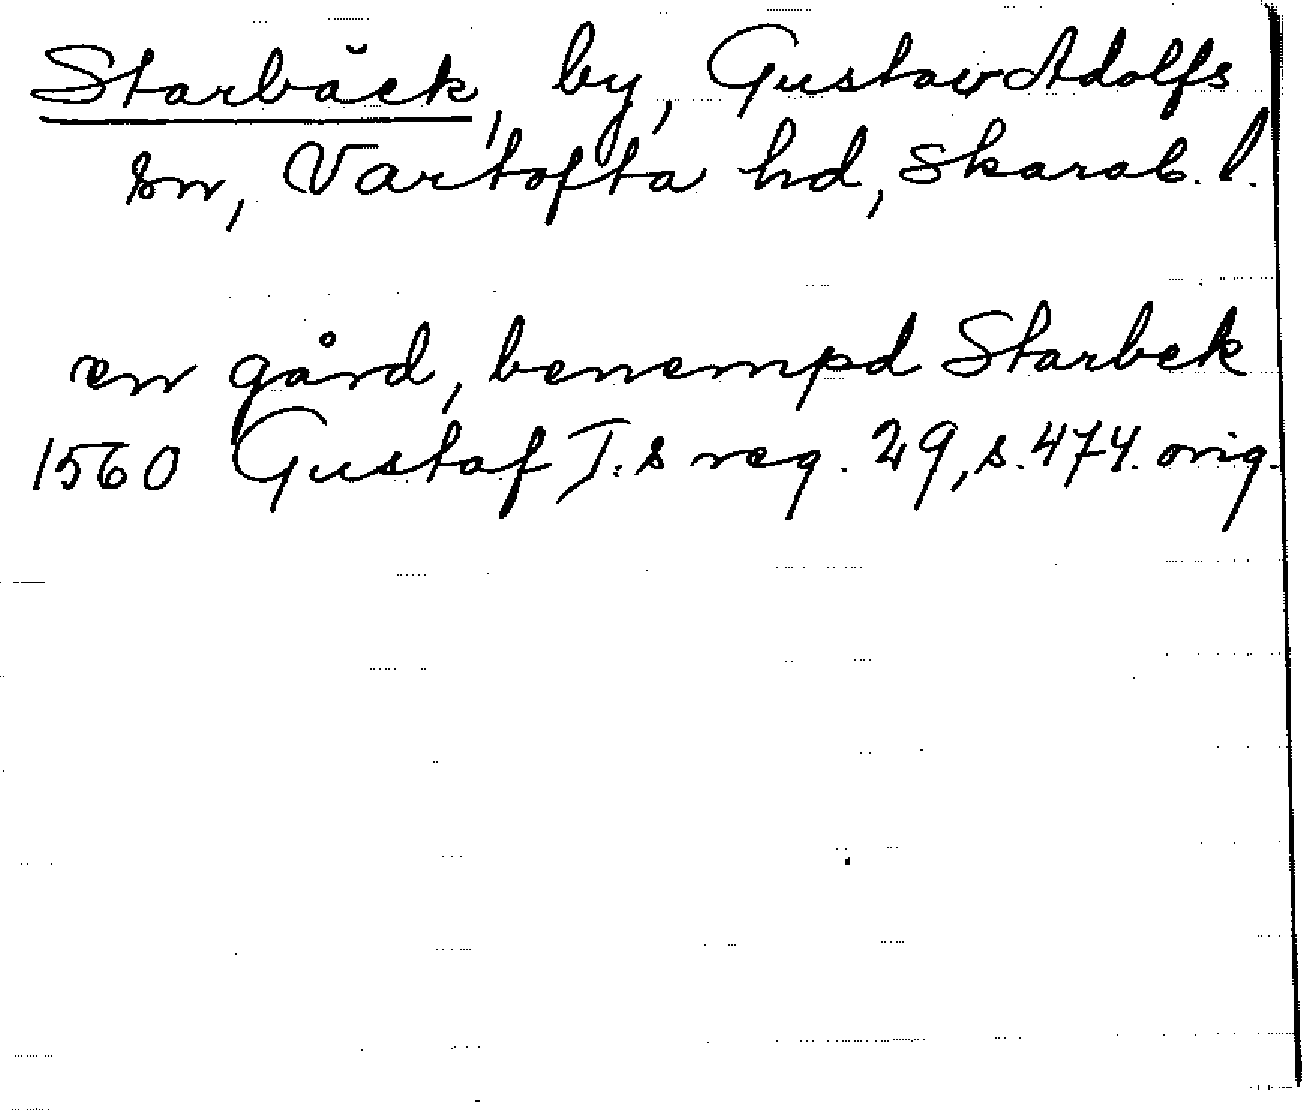 Starbäck, by, Gustav Adolfs
sn, Vartofta hd, Skarab. l.
en gård, benempd Starbek
1560 Gustaf I:s reg. 29, s. 474. orig.